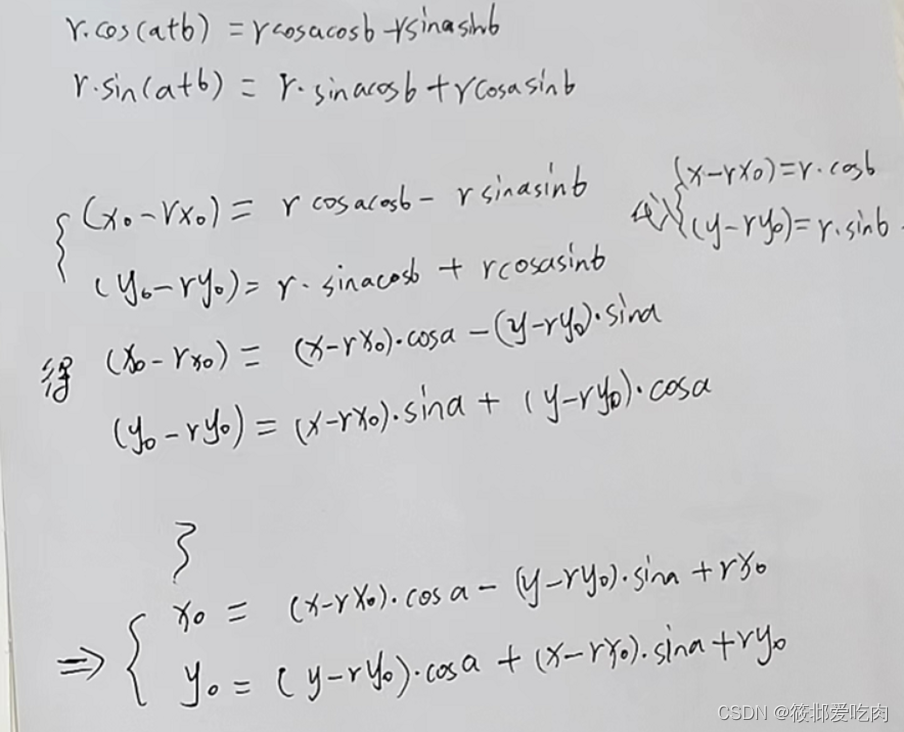 r.cos(a+b) = rcosacosb - rsinasinb
r.sin(a+b) = r·sinacosb + rcosasinb
{ (x₀-rx₀) = rcosacosb - rsinasinb
代入{ (x-rx₀)=r·cosb
(y-ry₀)=r·sinb
(y₀-ry₀)= r·sinacosb + rcosasinb
得 (x₀-rx₀) = (x-rx₀)·cosa-(y-ry₀)·sina
(y₀-ry₀) = (x-rx₀)·sina + (y-ry₀)·cosa
}
⇒ { x₀ = (x-rx₀)·cosa-(y-ry₀)·sina+rx₀
y₀ = (y-ry₀)·cosa + (x-rx₀)·sina+ry₀
CSDN @筱邶爱吃肉